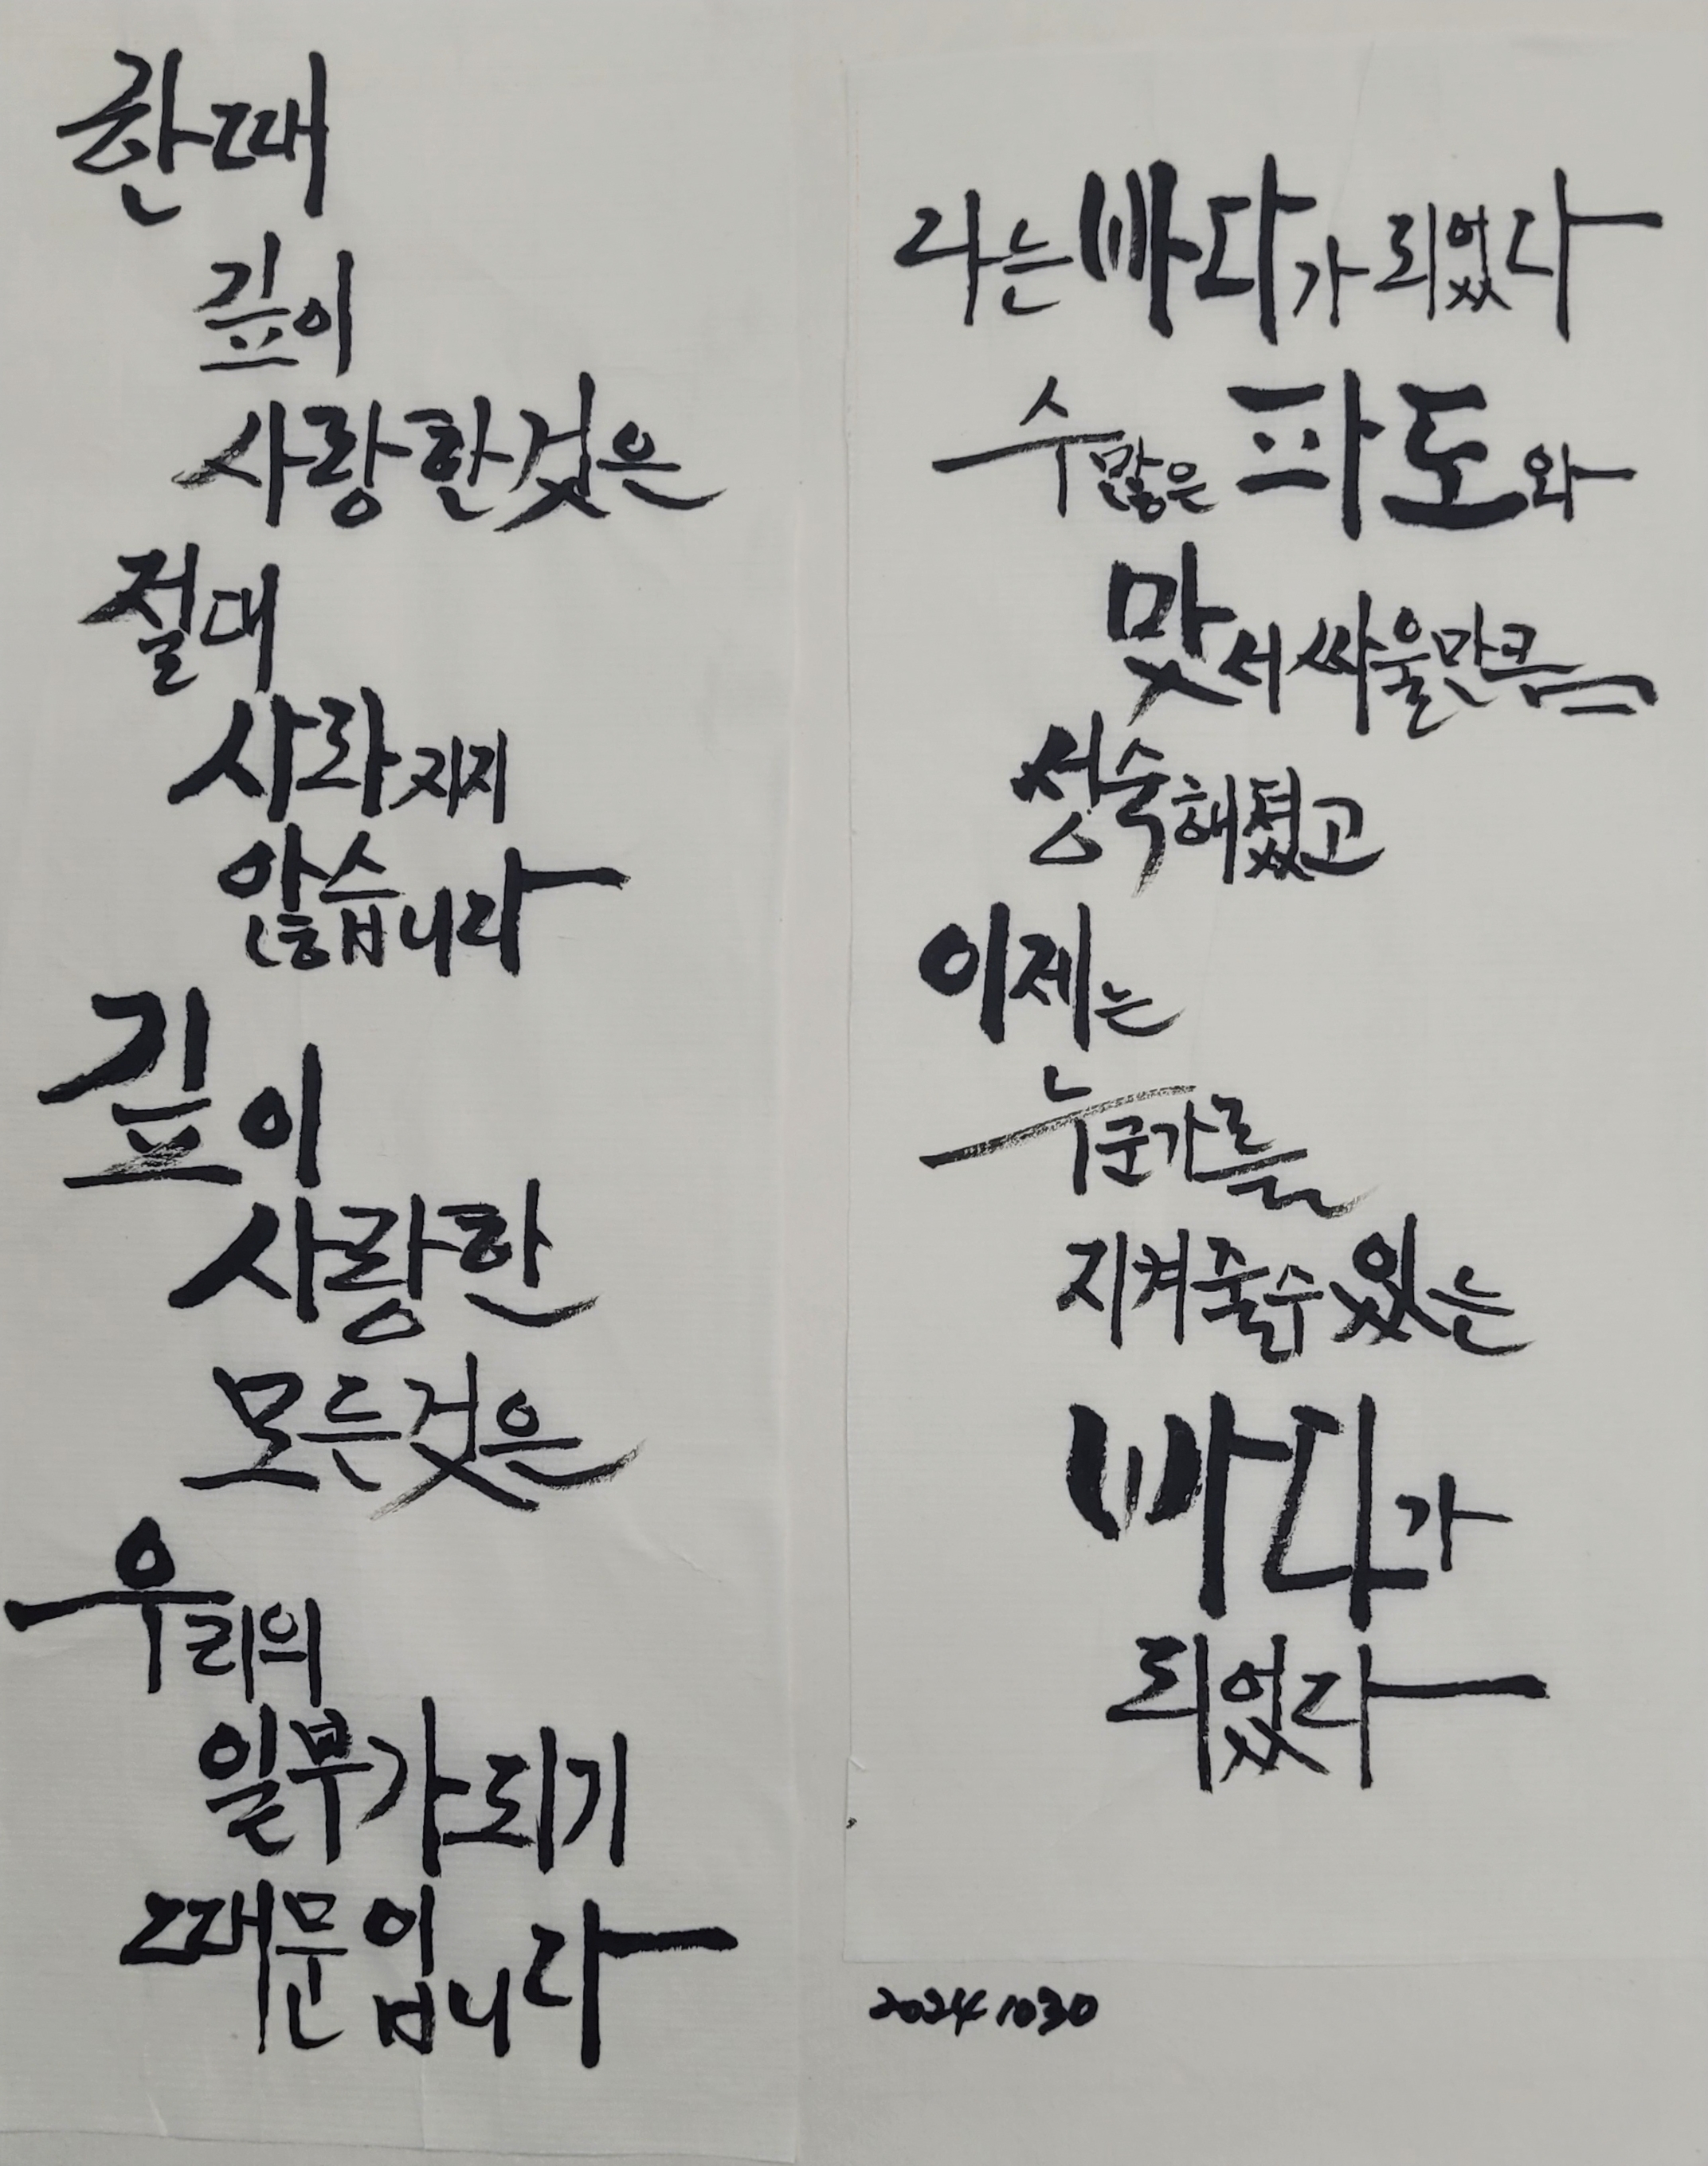 한때
깊이
사랑한것은
절대
사라지지
않습니다
깊이
사랑한
모든것은
우리의
일부가되기
때문입니다
나는 바다가 되었다
수많은 파도와
맞서 싸울만큼
성숙해졌고
이제는
누군가를
지켜줄수있는
바다가
되었다
20241030